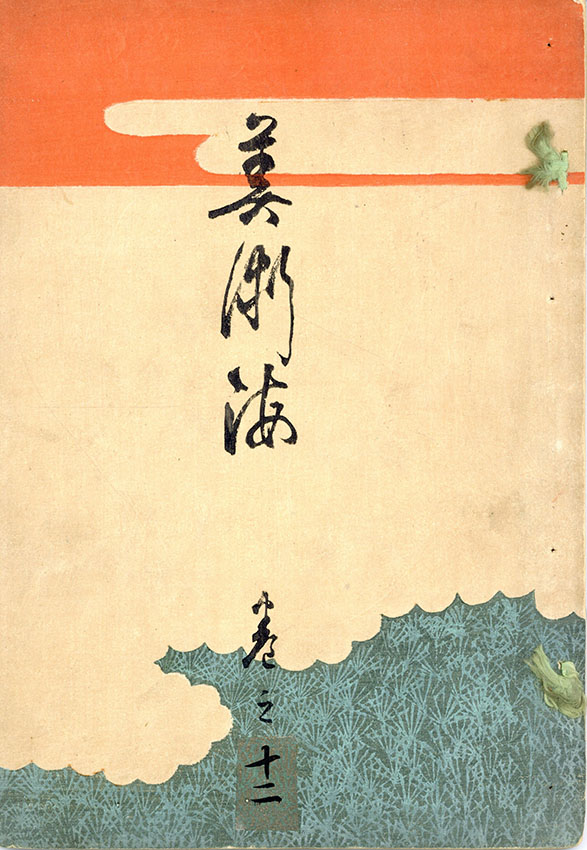 美術海
巻之十二